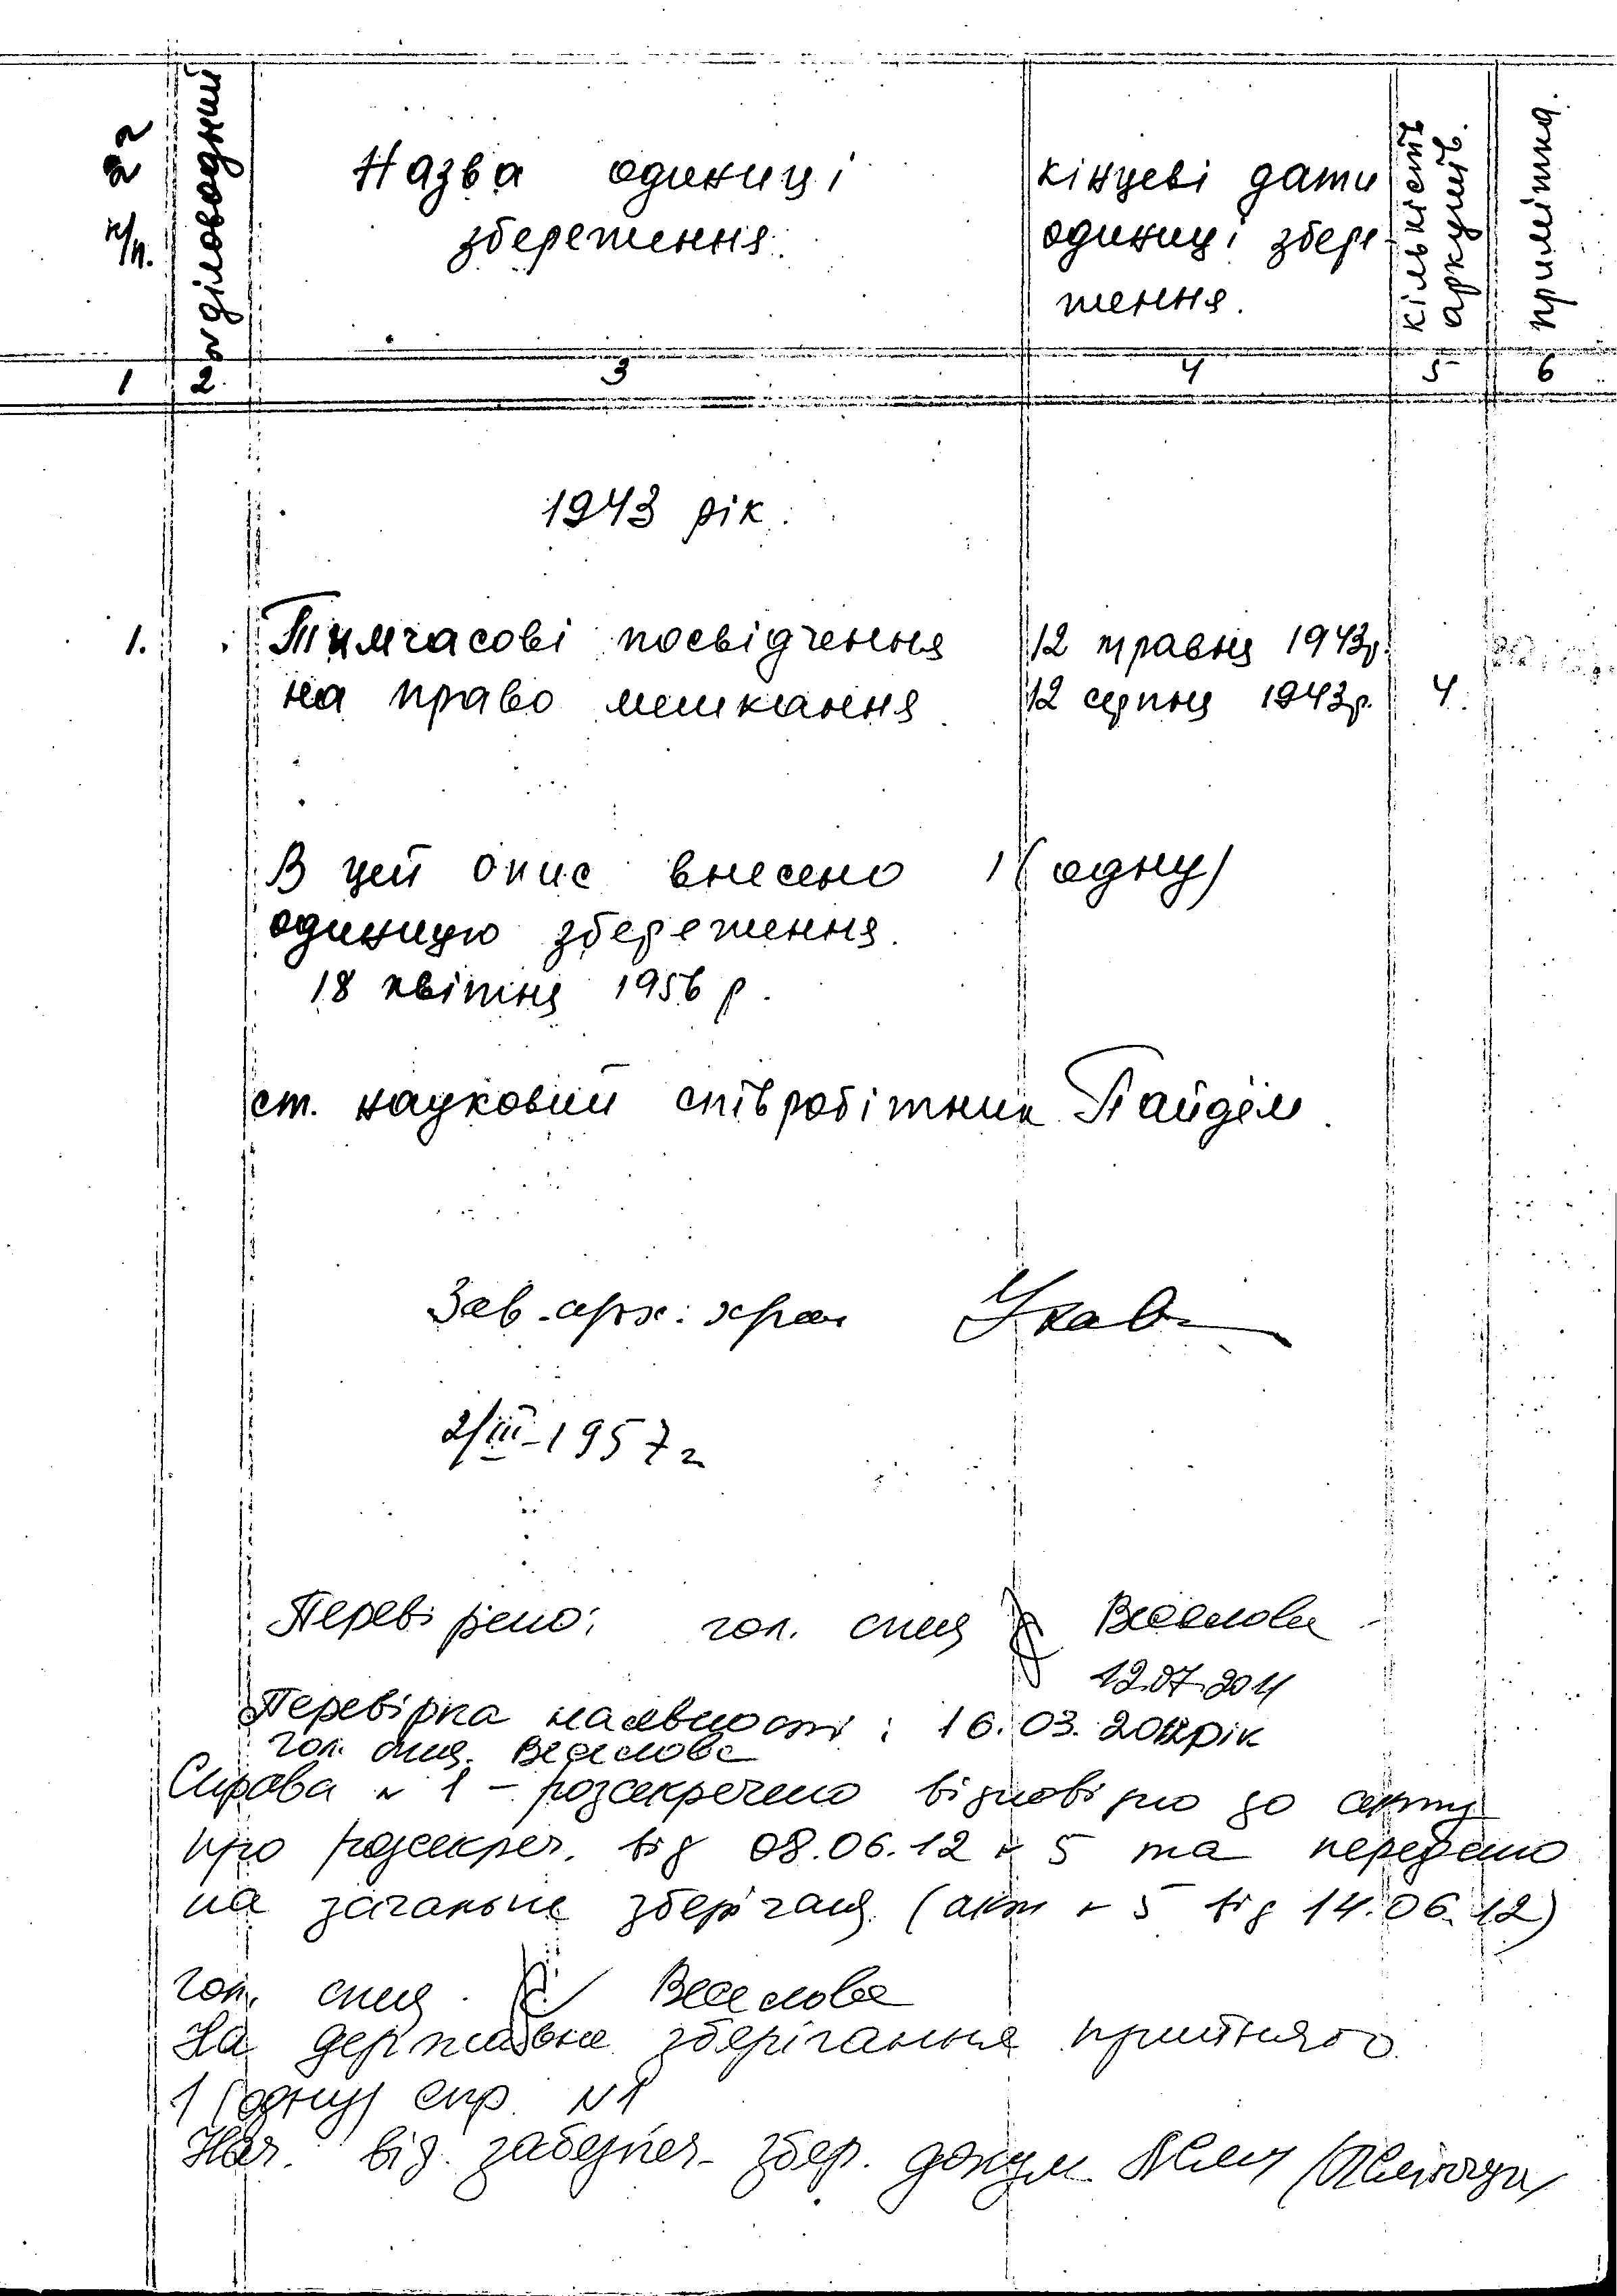 №№ п/п.
№ діловодний
Назва одиниці
збереження.
кінцеві дати
одиниці збере-
ження.
кількість
аркушів.
примітка.
1 2. 3 4 5. 6
1943 рік.
1. Тимчасові посвідчення 12 травня 1943р.
на право мешкання. 12 серпня 1943р. 4.
В цей опис внесено 1 (одну)
одиницю збереження.
18 квітня 1956 р.
ст. науковий співробітник Пайдём.
Зав. арх. хран
2/III-1957г
Перевірено: гол. спец Веселова
12.07.2011
Перевірка наявності: 16.03.2012рік
гол. спец. Веселова
Справа № 1 - розсекречено відповідно до акту
про розсекреч. від 08.06.12 № 5 та передано
на загальне зберігання (акт № 5 від 14.06.12)
гол. спец. Веселова
На державне зберігання прийнято
1 (одну) спр. №1
Нач. від. забезпеч. збер. докум.